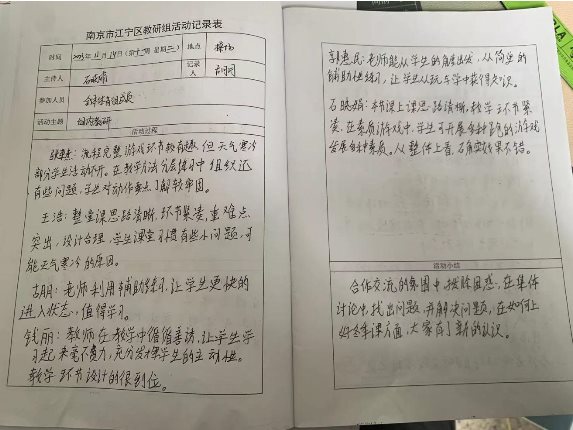 南京市江宁区教研组活动记录表
时间
地点
操场
主持人
记录人
参加人员
全体体育组成员
活动主题
组内教研
活动过程
流程完整,游戏环节较有趣,但天气寒冷
部分学生活动不开。在教学方法分层练习中组织还
有些问题,学生对动作要点了解较牢固。
王浩:整堂课思路清晰,环节紧凑,重难点
突出,设计合理,学生课堂习惯有些小问题,可
能天气寒冷的原因。
胡明:老师利用辅助练习,让学生更快的
进入状态,值得学习。
钱丽:教师在教学中循循善诱,让学生学
习起来毫不费力,充分发挥学生的主动性。
教学环节设计的很到位。
老师能从学生的角度出发,从简单的
辅助练习,让学生从玩与学中获得知识。
本节课上课思路清晰,教学环节紧
凑,在素质游戏中,学生可开展各种角色的游戏
发展各种素质。从整体上看,石角实效果不错。
活动小结
合作交流的氛围中接除困惑,在集体
讨论中,找出问题,并解决问题,在如何上
好冬季课方面,大家有了新的认识。